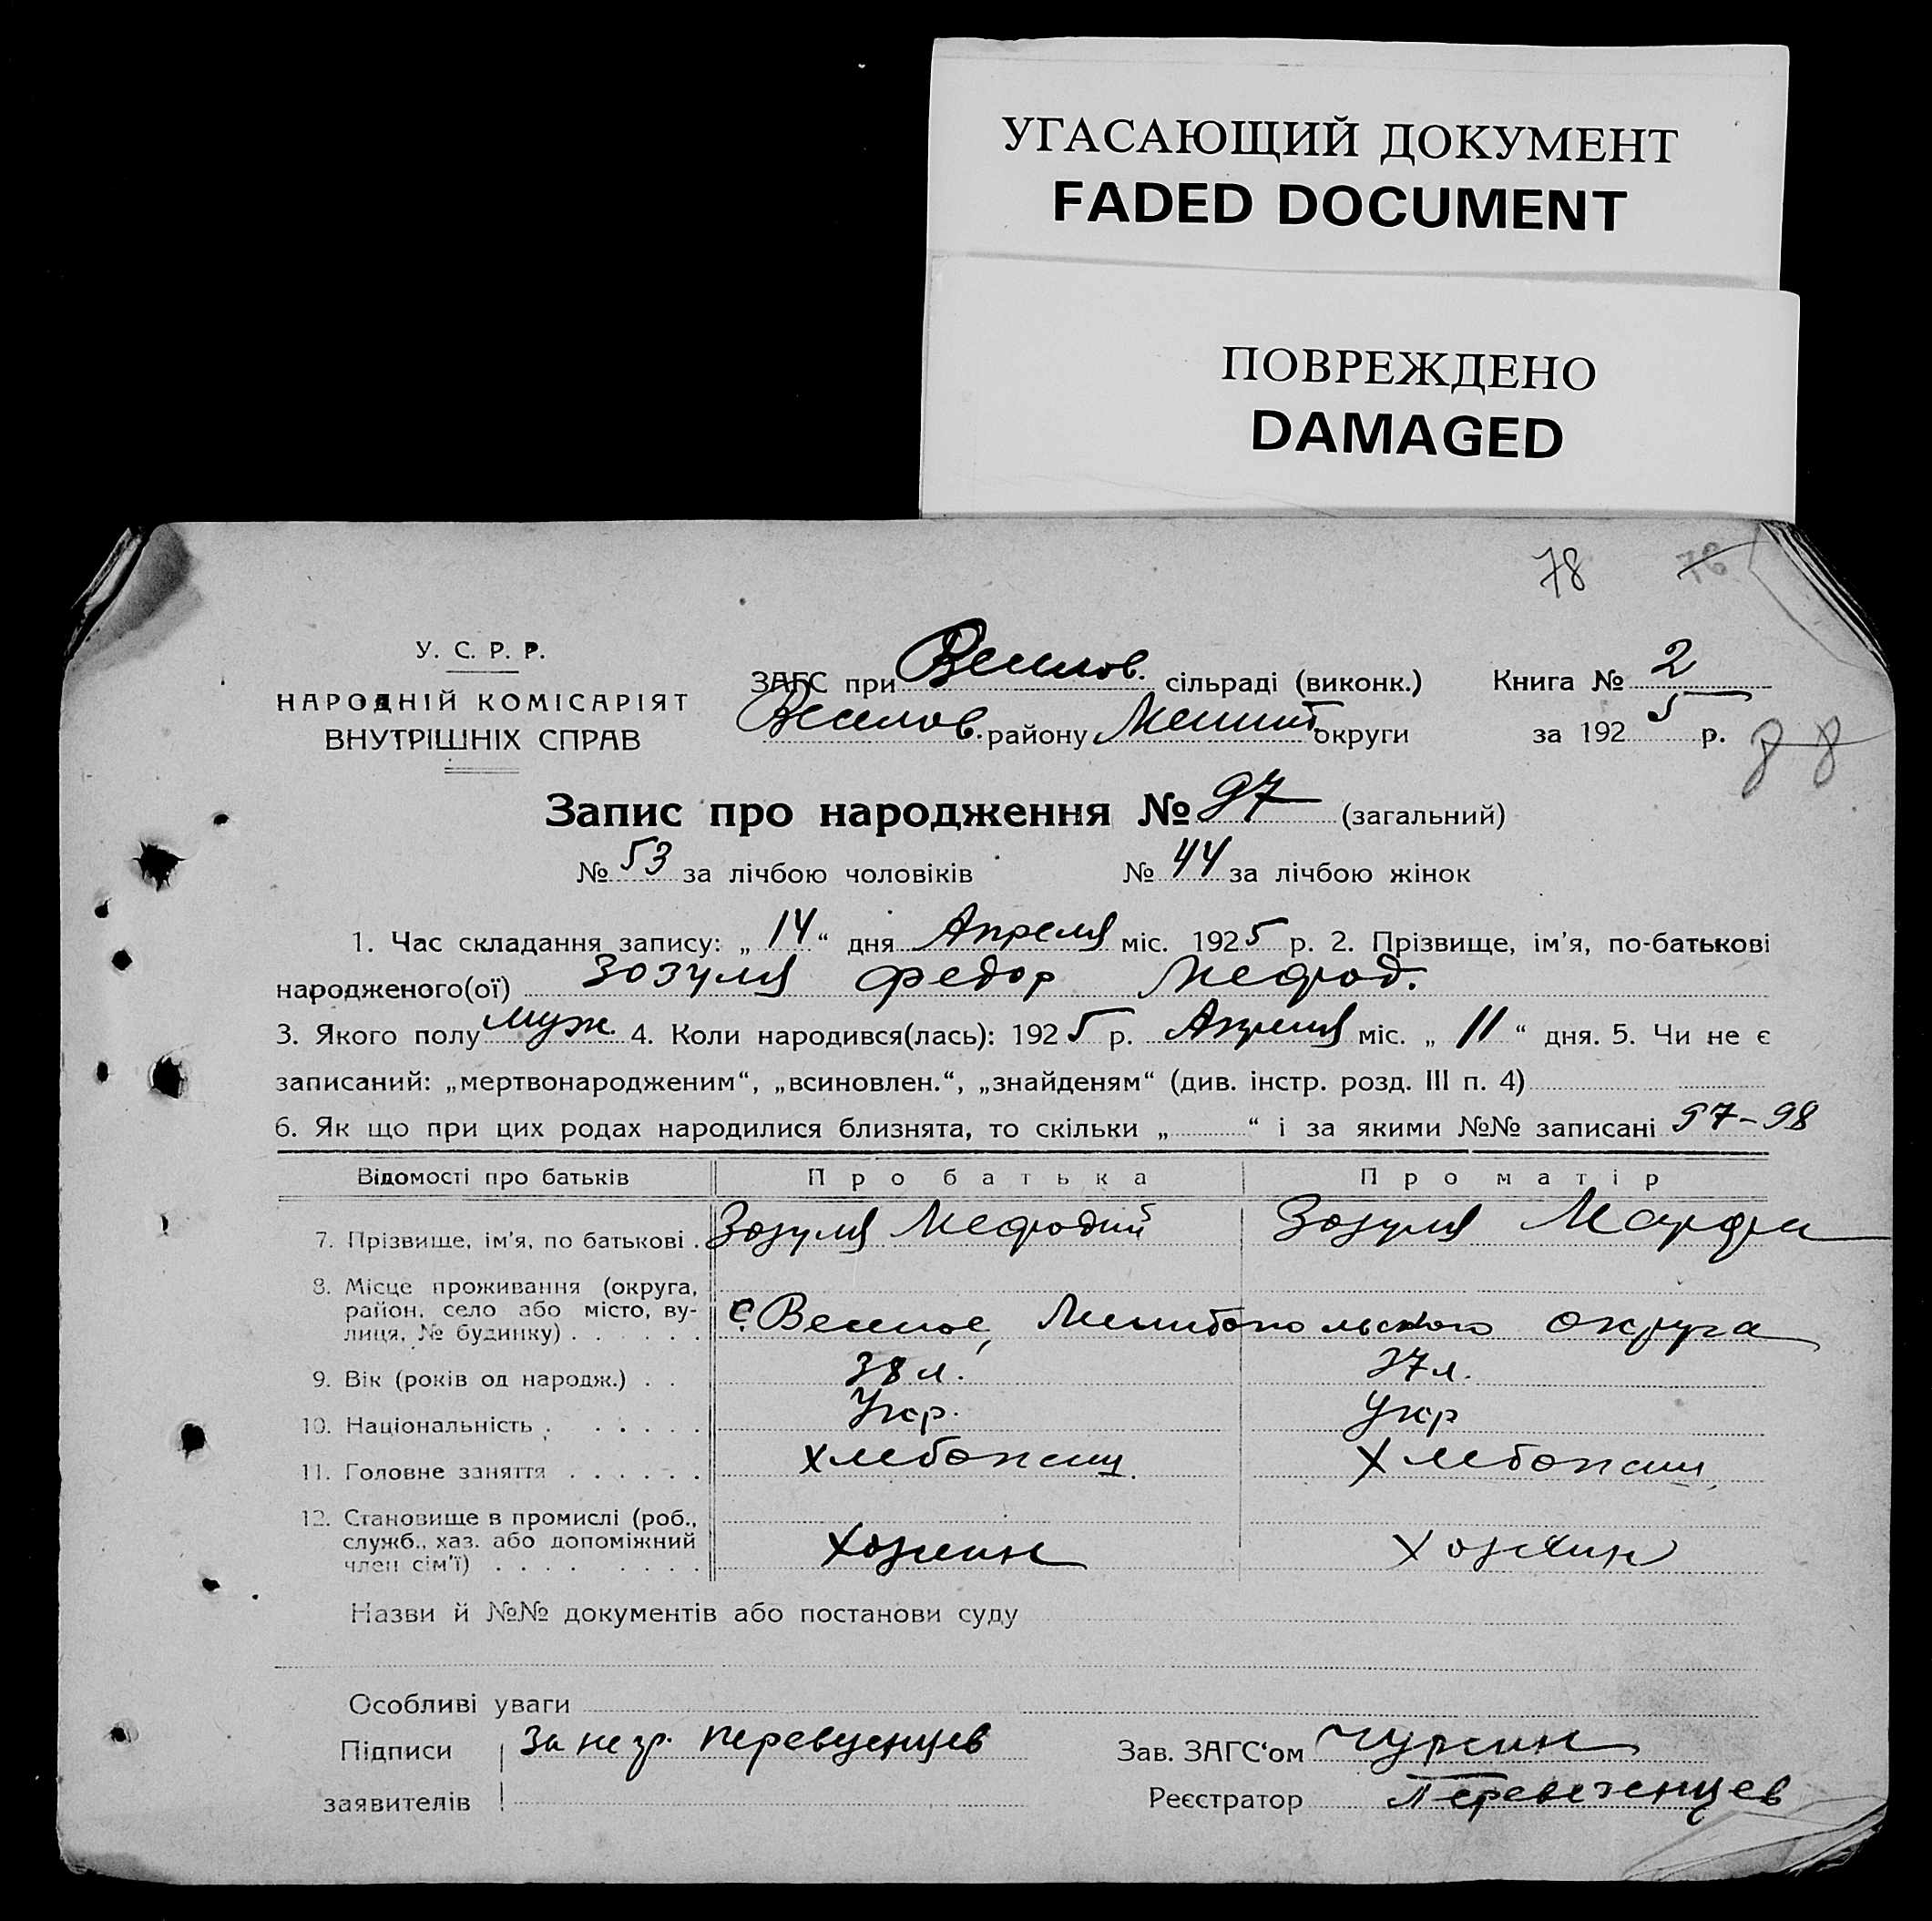 УГАСАЮЩИЙ ДОКУМЕНТ
FADED DOCUMENT
ПОВРЕЖДЕНО
DAMAGED
78 76
У. С. Р. Р.
НАРОДНІЙ КОМІСАРІЯТ
ВНУТРІШНІХ СПРАВ
ЗАГС при Веселов. сільраді (виконк.) Книга № 2
Веселов. району Мелит округи за 1925 р.
88
Запис про народження № 97 (загальний)
№ 53 за лічбою чоловіків № 44 за лічбою жінок
1. Час складання запису: „ 14 “ дня Апреля міс. 1925 р. 2. Прізвище, ім’я, по-батькові
народженого(ої) Зозуля Федор Мефод.
3. Якого полу муж. 4. Коли народився(лась): 1925 р. Апреля міс. „ 11 “ дня. 5. Чи не є
записаний: „мертвонародженим“, „всиновлен.“, „знайденям“ (див. інстр. розд. III п. 4)
6. Як що при цих родах народилися близнята, то скільки „ “ і за якими №№ записані 97-98
Відомості про батьків Про батька Про матір
7. Прізвище, ім’я, по батькові . Зозуля Мефодий Зозуля Марфа
8. Місце проживання (округа,
район, село або місто, ву-
лиця, № будинку) . . . . . . с. Веселое, Мелитопольского округа
9. Вік (років од народж.) . . 38 л. 37 л.
10. Національність . . . . . . Укр. Укр
11. Головне заняття . . . . . . Хлебопаш. Хлебопаш.
12. Становище в промислі (роб.,
служб., хаз. або допоміжний
член сім’ї) . . . . . . . . Хозяин Хозяин
Назви й №№ документів або постанови суду
Особливі уваги
Підписи За негр. Перевезенцев Зав. ЗАГС‘ом
заявителів Реєстратор Перевезенцев